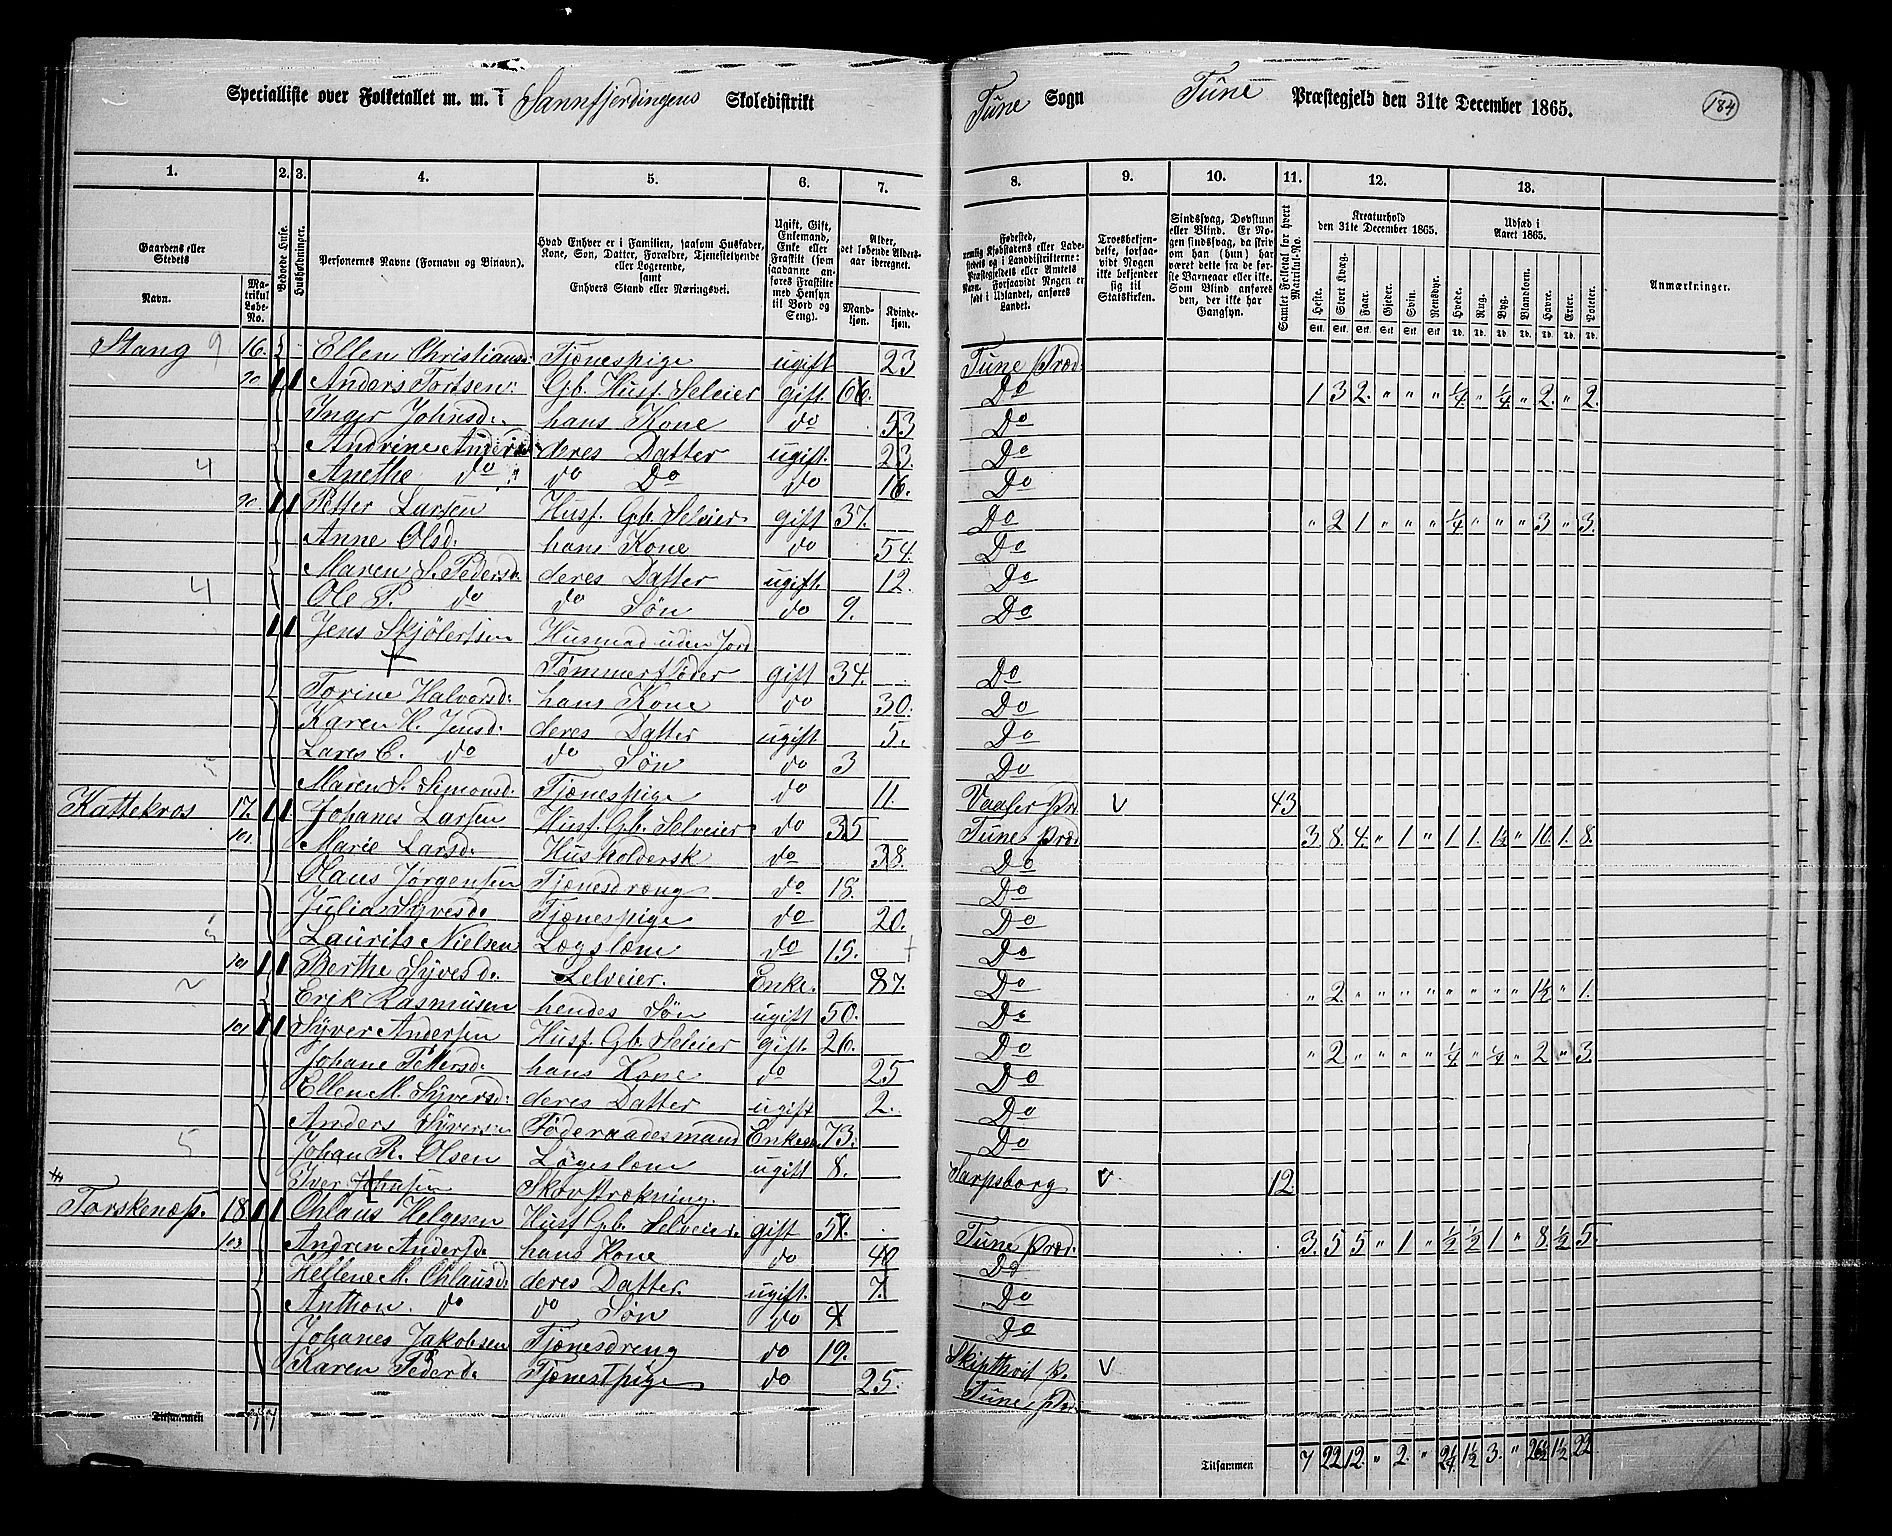 Specialliste over Folketallet m. m. i Sannfjerdingens Skoledistrikt
Tune Sogn Tune Præstegjeld den 31te December 1865.
184
1. 2. 3. 4. 5. 6. 7. 8. 9. 10. 11. 12. 13.
Gaardens eller Stedets
Navn.
Matrikul Løbe-No.
Beboede Huse.
Husholdninger.
Personernes Navne (Fornavn og Binavn).
Hvad Enhver er i Familien, saasom Husfader, Kone, Søn, Datter, Forældre, Tjenestetyende eller Logerende, samt Enhvers Stand eller Næringsvei.
Ugift, Gift, Enkemand, Enke eller Fraskilt (som saadanne anføres Fraskilte med Hensyn til Bord og Seng).
Alder, det løbende Aldersaar iberegnet.
Mandkjøn. Kvindekjøn.
Fødested, nemlig Kjøbstadens eller Ladestedets eller i Landdistrikterne: Præstegjeldets eller Amtets Navn. Forsaavidt Nogen er født i Udlandet, anføres Landet.
Troesbekjendelse, forsaavidt Nogen ikke bekjender sig til Statskirken.
Sindssvag, Døvstum eller Blind. Er Nogen sindssvag, da skriv om han (hun) har været dette fra de første Barneaar eller ikke. Som Blind anføres den, der ikke har Gangsyn.
Samlet Folketal for hvert Matrikul-No.
Kreaturhold den 31te December 1865.
Heste. Stort Kvæg. Faar. Gjeder. Svin. Rensdyr.
Udsæd i Aaret 1865.
Hvede. Rug. Byg. Blandkorn. Havre. Erter. Poteter.
Anmærkninger.
Stang 9 16. Ellen Christiansd. Tjenespige ugift 23 Tune Præd.
90 Anders Tortsen Gb. Husf. Selveier gift 66. Do 1 3 2. " " " ¼ " ¼ " 2. " 2.
Inger Johnsd. hans Kone do 53 Do
Andrine Andersd. deres Datter ugift. 23. Do
4 Anethe do do Do do 16. Do
90. Petter Larsen Husf. Gb. Selveier gift 37. Do " 2 1 " " " ¼ " " " 3 " 3.
Anne Olsd. hans Kone do 54. Do
Maren S. Pedersd. deres Datter ugift. 12. Do
4 Ole P. do do Søn do 9. Do
Jens Skjølersen Husmad uden Jord
Tømmerfløder gift 34. Do
Torine Halvorsd. hans Kone do 30. Do
Karen H. Jensd. deres Datter ugift. 5. Do
Lares C. do do Søn do 3 Do
Maren S. Simonsd. Tjenespige do 11. Vaaler Pr. V 43
Kattekros 17. Johanes Larsen Husf. Gb. Selveier do 35 Tune Præd. 3. 8 4. " 1 " 1 1. 1½ " 10. 1. 8.
101. Marie Larsd. Husholdersk do 38. Do
Olaus Jørgensen Tjenesdræng do 18. Do
Julia Syvesd. Tjenespige do 20. Do
5 Laurits Nielsen Lægslæm do 15. Do
101 Berthe Syvesd. Selveier. Enke. 87. Do " 2. " " " " " " " " 1½ " 1.
2 Erik Rasmusen hendes Søn ugift 50. Do
101 Syver Andersen Husf. Gb. Selveier gift. 26. Do " 2. " " " " ¼ " ¼ " 2 " 3.
Johane Pettersd. hans Kone do 25 Do
Ellen M. Syversd. deres Datter ugift 2. Do
Anders Syversen Føderaadesmand Enkem. 73. Do
5 Johan R. Olsen Lægslæm ugift 8. Sarpsborg V 12.
Iver Johnsen Skovstrækning.
Torskenæs. 18 Ohlaus Helgesen Husf. Gb. Selveier gift 51. Tune Præd. 3. 5 5 " 1 " ½ ½ 1 " 8. ½ 5.
103 Andren Andersd. hans Kone do 40 Do
Hellene M. Ohlausd. deres Datter. ugift. 7. Do
Anthon. do do Søn do 4 Do
Johanes Jakobsen Tjenesdreng do 19. Skipthvit P. V
Karen Pederd. Tjenestpige do 25. Tune Pr.
Tilsammen 7 7
Tilsammen 7 22 12. " 2. " 2¼ 1½ 3. " 26½ 1½ 22